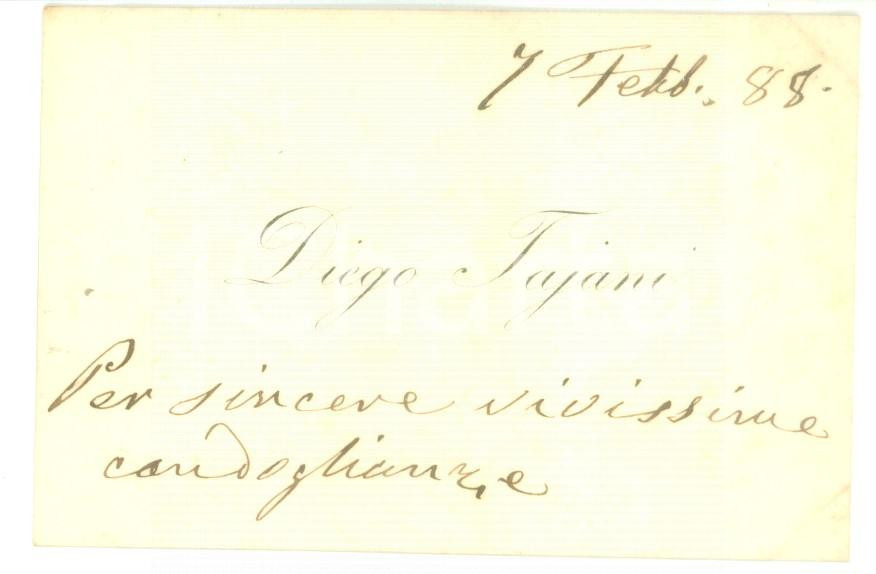 7 Febb. 88.
Diego Tajani
Per sincere vivissime
condoglianze